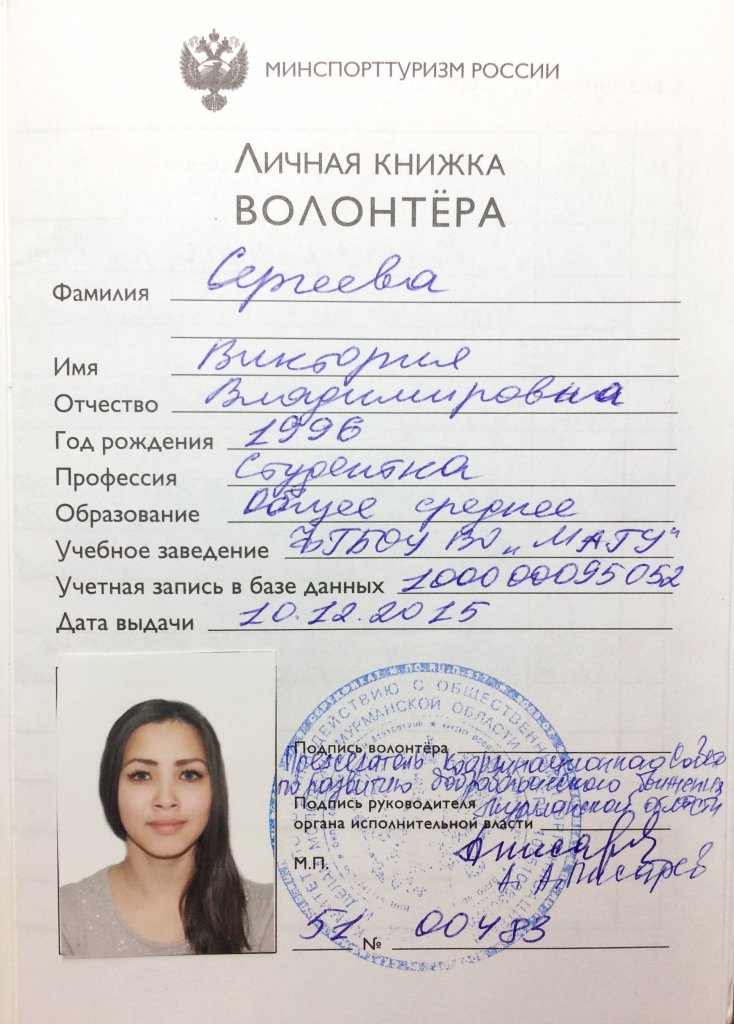 МИНСПОРТТУРИЗМ РОССИИ
ЛИЧНАЯ КНИЖКА
ВОЛОНТЁРА
Фамилия Сергеева
Имя Виктория
Отчество Владимировна
Год рождения 1996
Профессия Студентка
Образование Общее среднее
Учебное заведение ФГБОУ ВО „МАГУ“
Учетная запись в базе данных 100000095052
Дата выдачи 10.12.2015
ДЕЙСТВИЮ С ОБЩЕСТВЕНН
МУРМАНСКОЙ ОБЛАСТИ
Подпись волонтёра
Председатель координационного совета
по развитию добровольческого движения
Подпись руководителя Мурманской области
органа исполнительной власти
А. А. Писарев
М.П.
51 № 00483